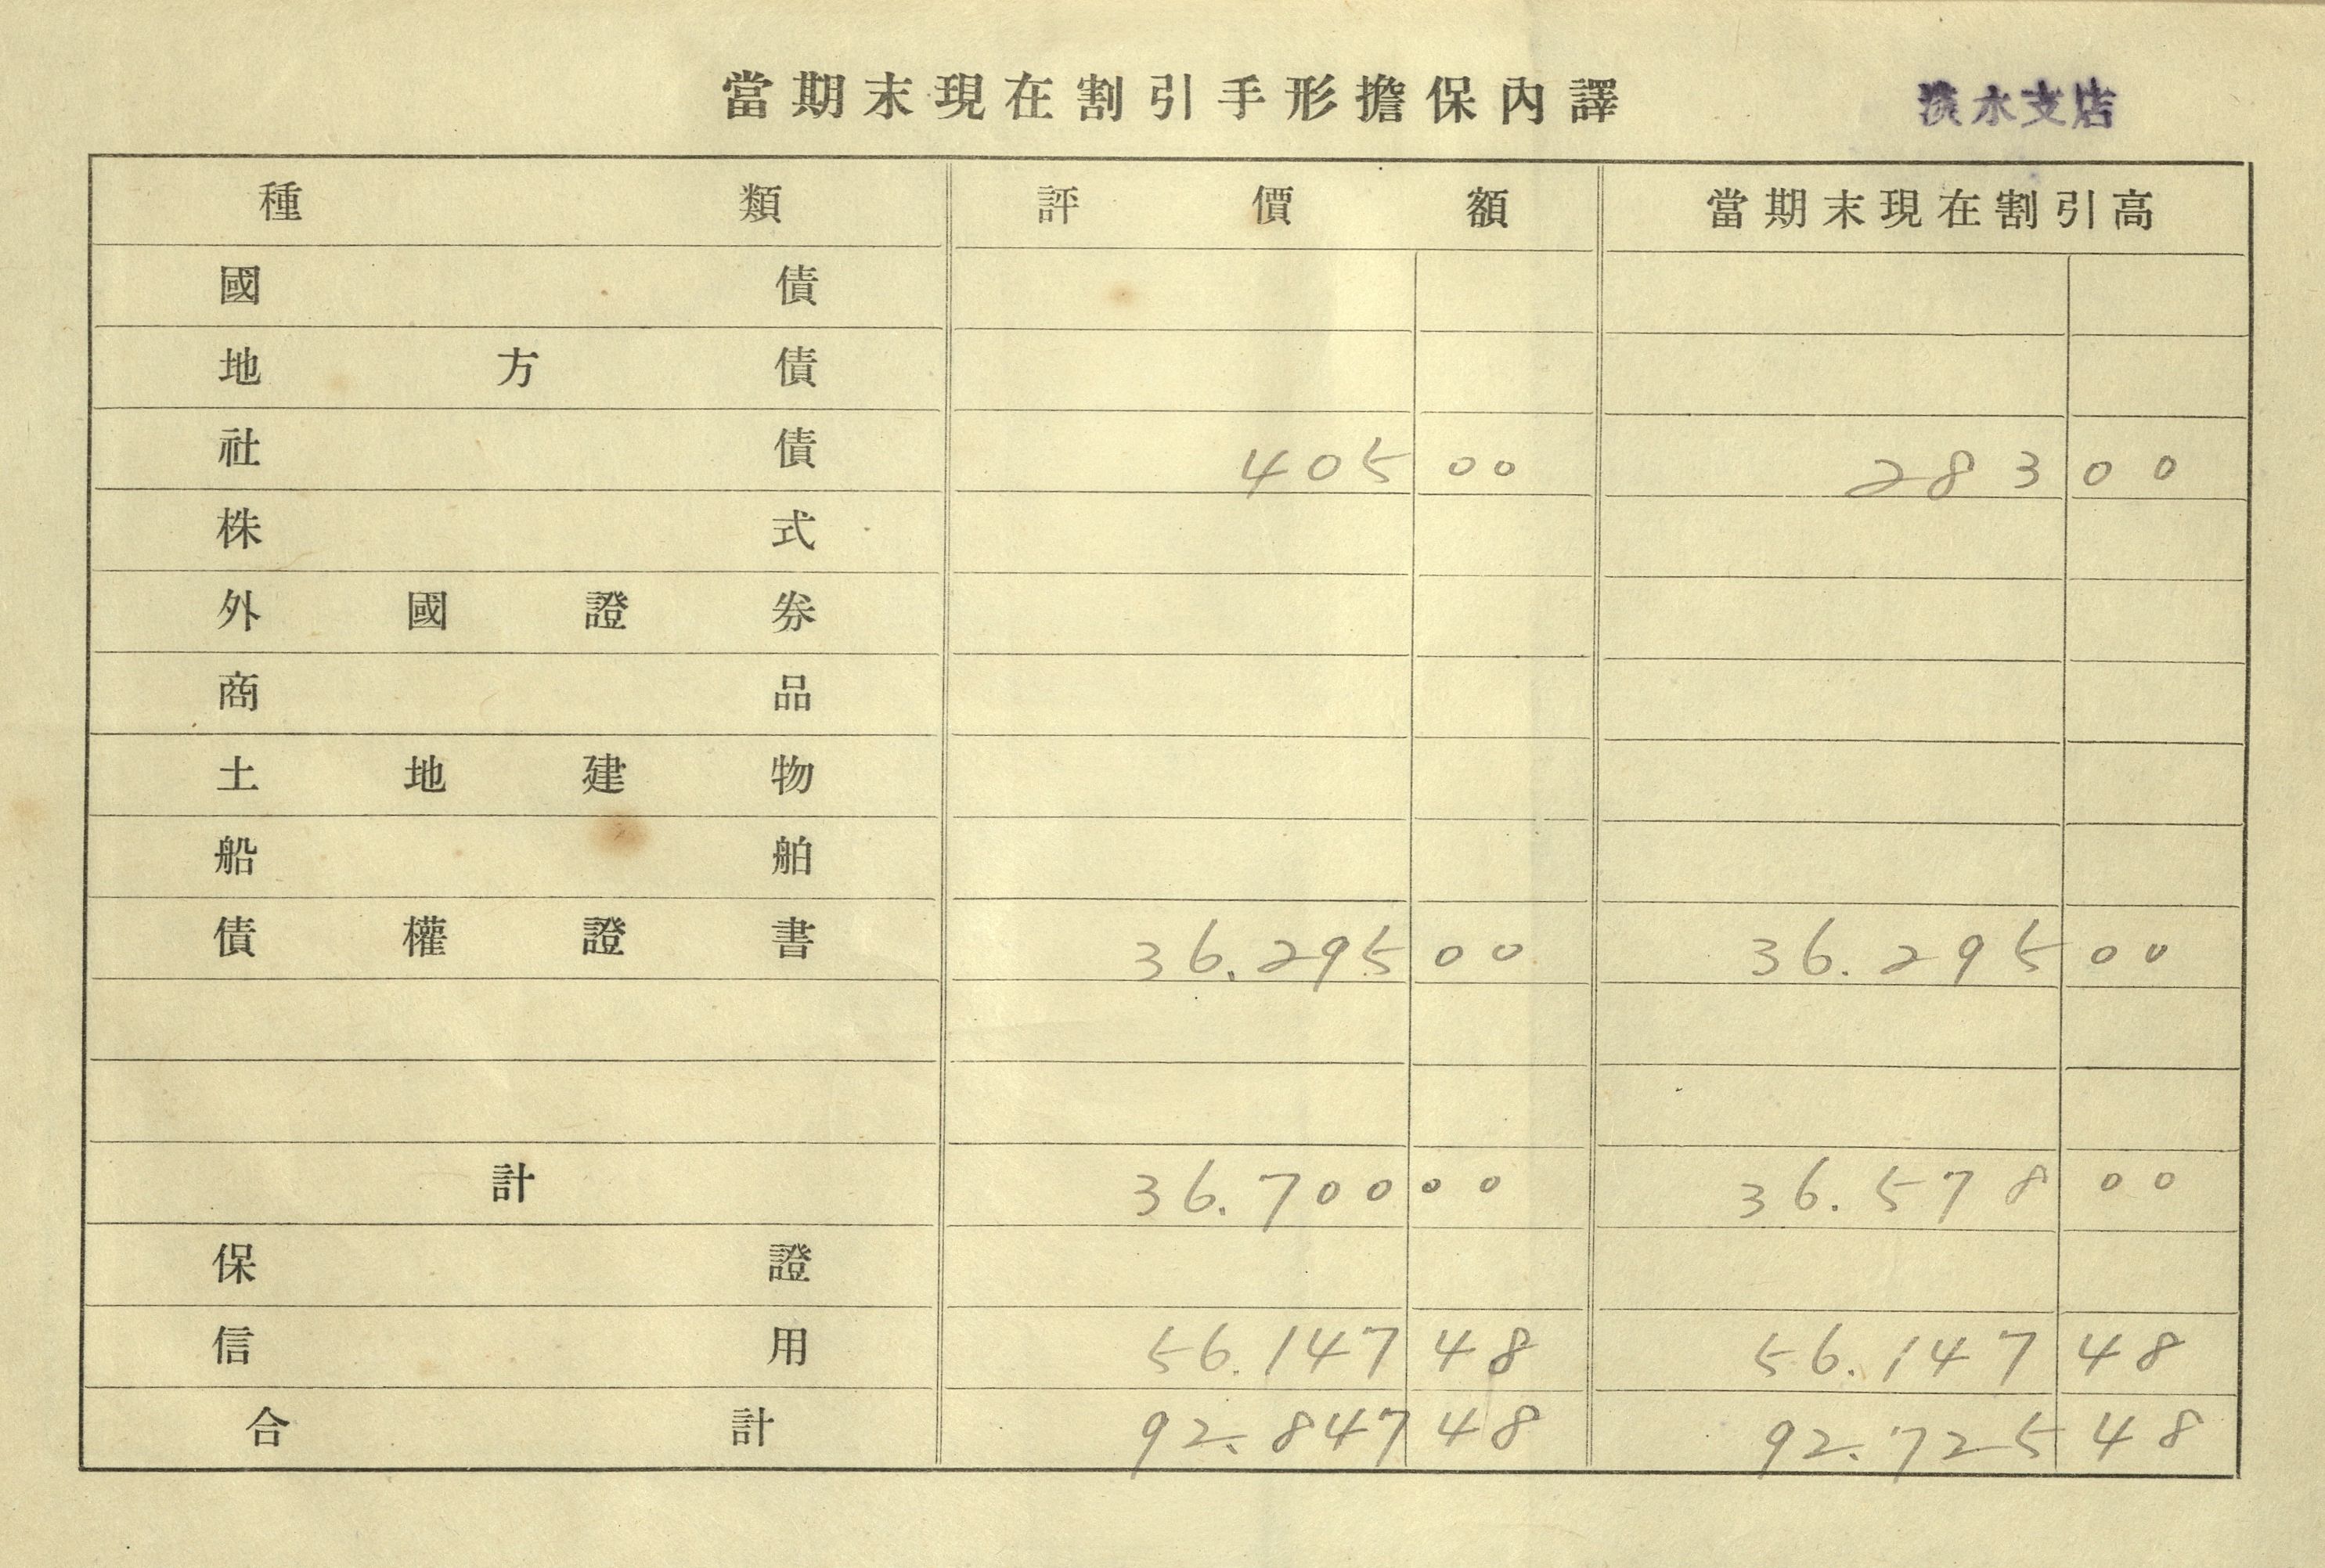 當期末現在割引手形擔保內譯 淡水支店
種類 評價額 當期末現在割引高
國債
地方債
社債 405 00 283 00
株式
外國證券
商品
土地建物
船舶
債權證書 36.295 00 36.295 00
計 36.700 00 36.578 00
保證
信用 56.147 48 56.147 48
合計 92.847 48 92.725 48